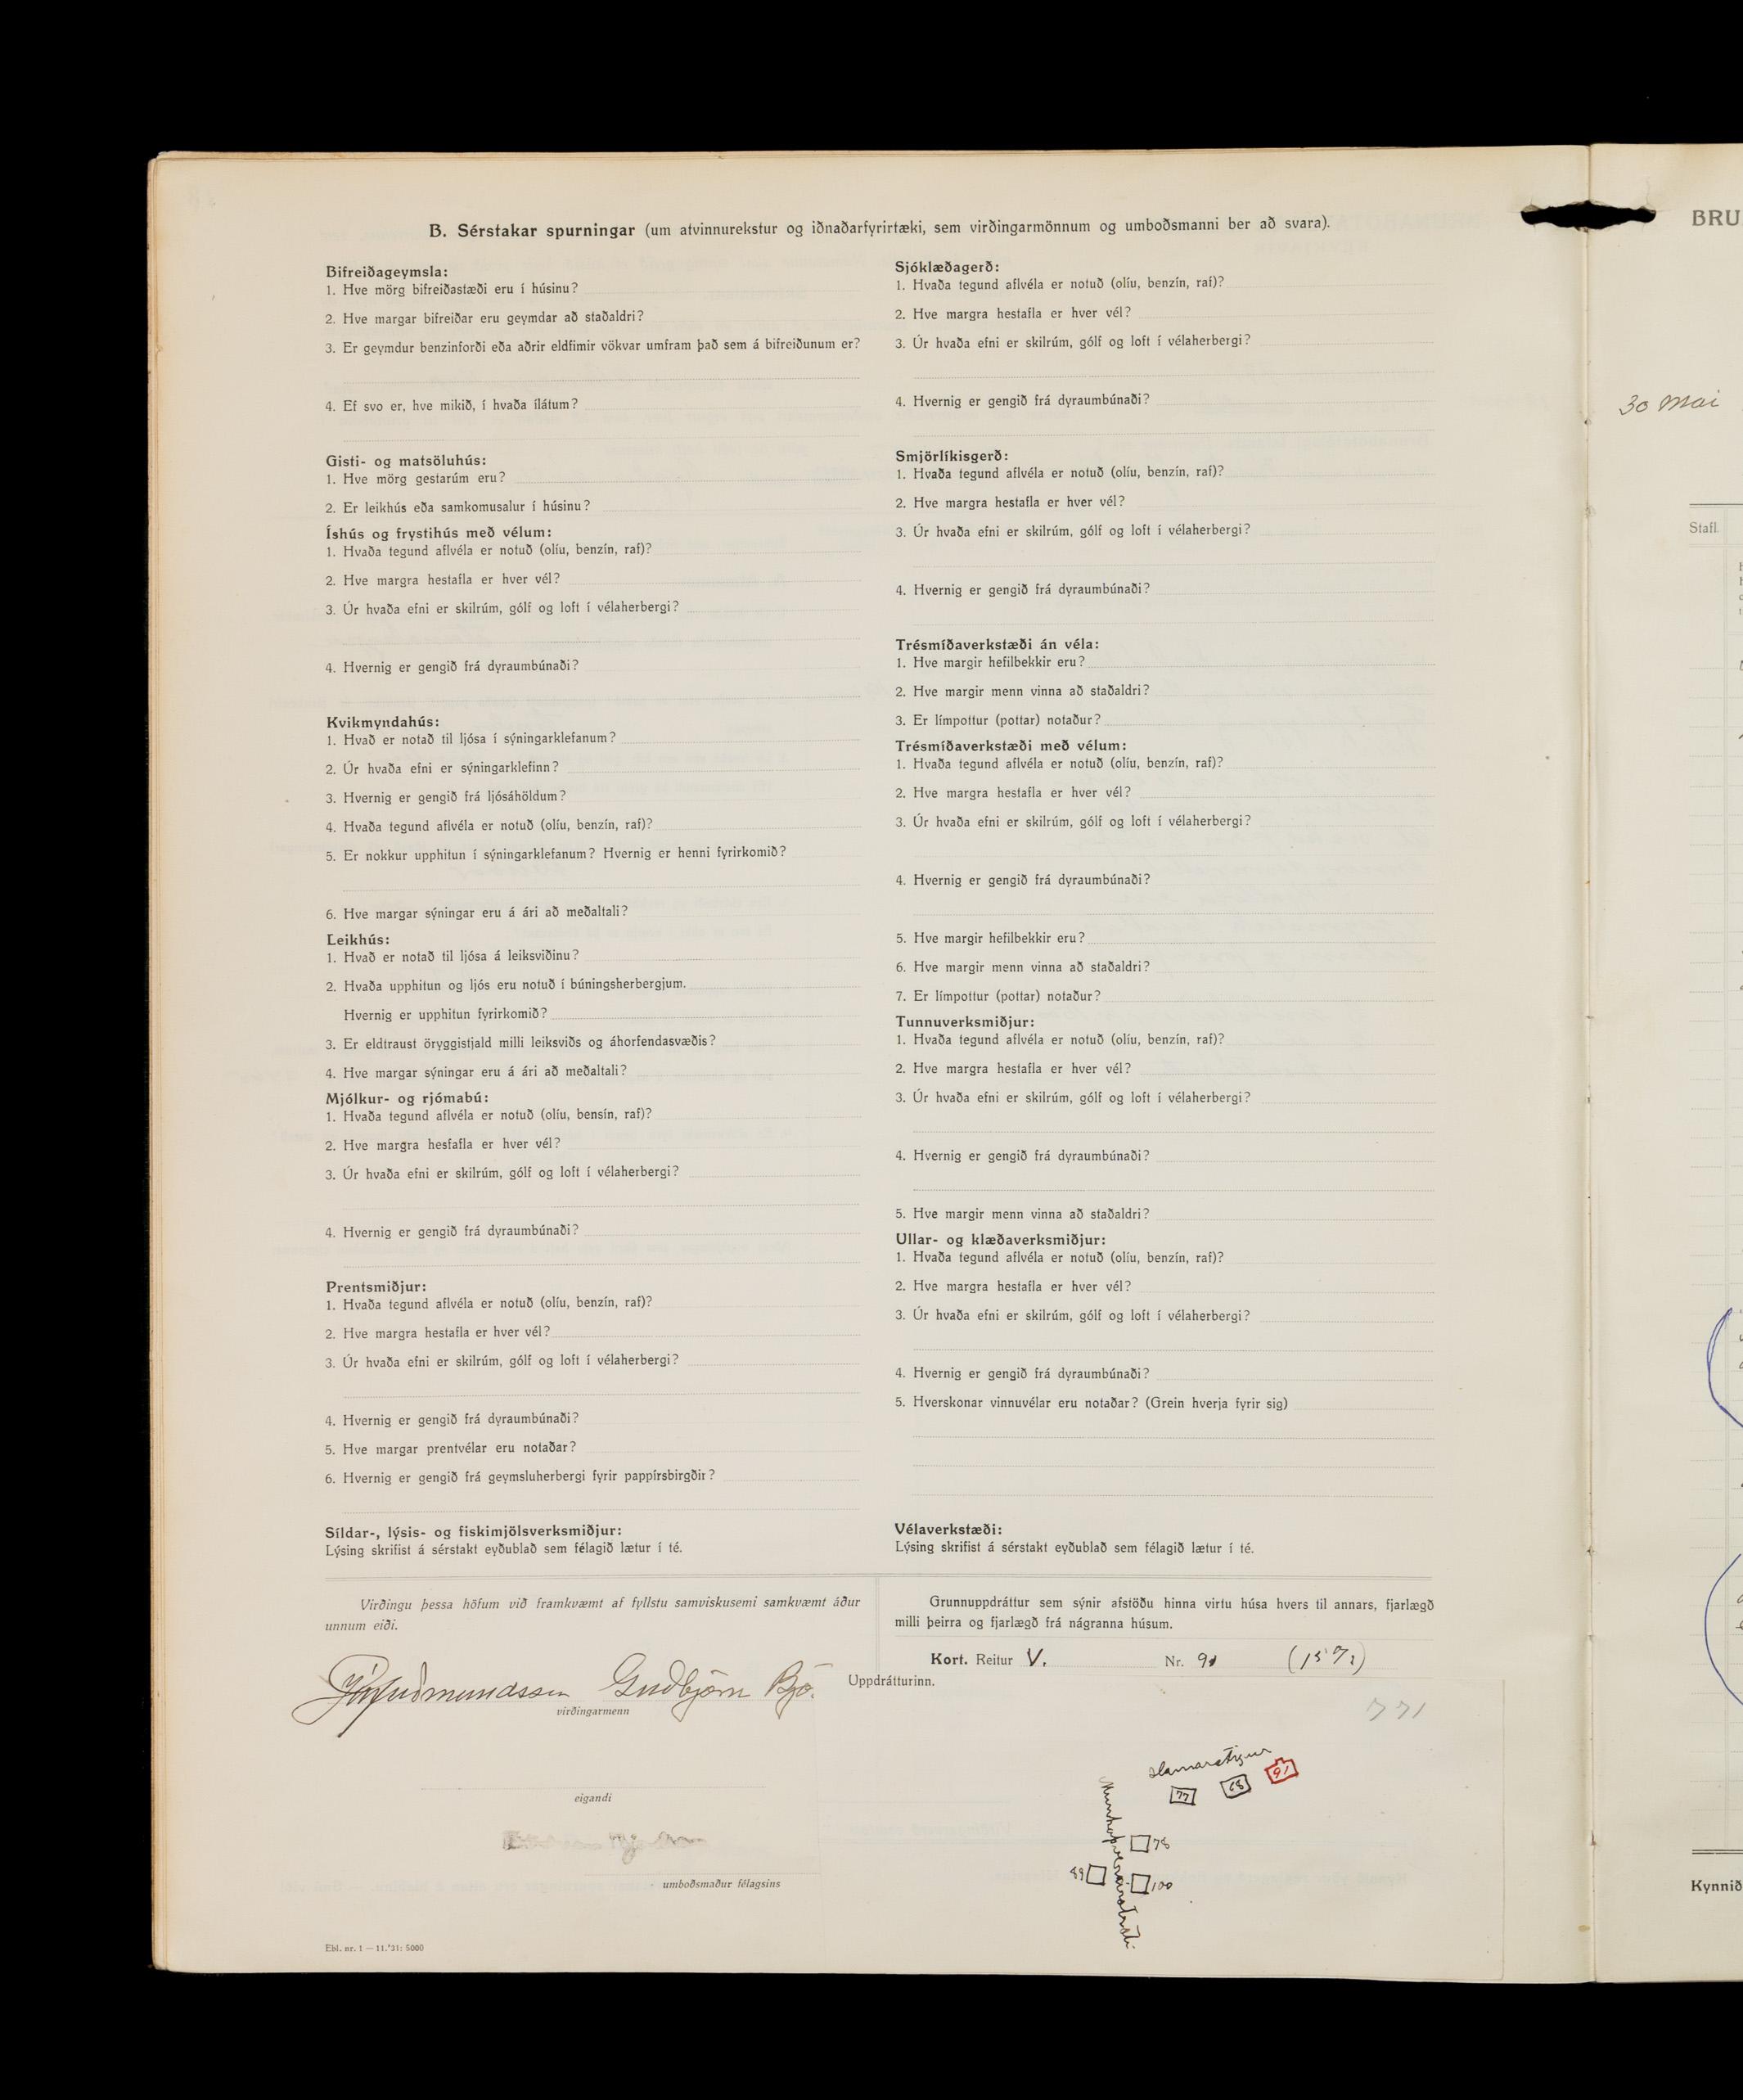 B. Sérstakar spurningar (um atvinnurekstur og iðnaðarfyrirtæki, sem virðingarmönnum og umboðsmanni ber að svara).
Bifreiðageymsla:
1. Hve mörg bifreiðastæði eru í húsinu?
2. Hve margar bifreiðar eru geymdar að staðaldri?
3. Er geymdur benzinforði eða aðrir eldfimir vökvar umfram það sem á bifreiðunum er?
4. Ef svo er, hve mikið, í hvaða ílátum?
Gisti- og matsöluhús:
1. Hve mörg gestarúm eru?
2. Er leikhús eða samkomusalur í húsinu?
Íshús og frystihús með vélum:
1. Hvaða tegund aflvéla er notuð (olíu, benzín, raf)?
2. Hve margra hestafla er hver vél?
3. Úr hvaða efni er skilrúm, gólf og loft í vélaherbergi?
4. Hvernig er gengið frá dyraumbúnaði?
Kvikmyndahús:
1. Hvað er notað til ljósa í sýningarklefanum?
2. Úr hvaða efni er sýningarklefinn?
3. Hvernig er gengið frá ljósáhöldum?
4. Hvaða tegund aflvéla er notuð (olíu, benzín, raf)?
5. Er nokkur upphitun í sýningarklefanum? Hvernig er henni fyrirkomið?
6. Hve margar sýningar eru á ári að meðaltali?
Leikhús:
1. Hvað er notað til ljósa á leiksviðinu?
2. Hvaða upphitun og ljós eru notuð í búningsherbergjum.
Hvernig er upphitun fyrirkomið?
3. Er eldtraust öryggistjald milli leiksviðs og áhorfendasvæðis?
4. Hve margar sýningar eru á ári að meðaltali?
Mjólkur- og rjómabú:
1. Hvaða tegund aflvéla er notuð (olíu, bensín, raf)?
2. Hve margra hesfafla er hver vél?
3. Úr hvaða efni er skilrúm, gólf og loft í vélaherbergi?
4. Hvernig er gengið frá dyraumbúnaði?
Prentsmiðjur:
1. Hvaða tegund aflvéla er notuð (olíu, benzín, raf)?
2. Hve margra hestafla er hver vél?
3. Úr hvaða efni er skilrúm, gólf og loft í vélaherbergi?
4. Hvernig er gengið frá dyraumbúnaði?
5. Hve margar prentvélar eru notaðar?
6. Hvernig er gengið frá geymsluherbergi fyrir pappírsbirgðir?
Síldar-, lýsis- og fiskimjölsverksmiðjur:
Lýsing skrifist á sérstakt eyðublað sem félagið lætur í té.
Sjóklæðagerð:
1. Hvaða tegund aflvéla er notuð (olíu, benzín, raf)?
2. Hve margra hestafla er hver vél?
3. Úr hvaða efni er skilrúm, gólf og loft í vélaherbergi?
4. Hvernig er gengið frá dyraumbúnaði?
Smjörlíkisgerð:
1. Hvaða tegund aflvéla er notuð (olíu, benzín, raf)?
2. Hve margra hestafla er hver vél?
3. Úr hvaða efni er skilrúm, gólf og loft í vélaherbergi?
4. Hvernig er gengið frá dyraumbúnaði?
Trésmíðaverkstæði án véla:
1. Hve margir hefilbekkir eru?
2. Hve margir menn vinna að staðaldri?
3. Er límpottur (pottar) notaður?
Trésmíðaverkstæði með vélum:
1. Hvaða tegund aflvéla er notuð (olíu, benzín, raf)?
2. Hve margra hestafla er hver vél?
3. Úr hvaða efni er skilrúm, gólf og loft í vélaherbergi?
4. Hvernig er gengið frá dyraumbúnaði?
5. Hve margir hefilbekkir eru?
6. Hve margir menn vinna að staðaldri?
7. Er límpottur (pottar) notaður?
Tunnuverksmiðjur:
1. Hvaða tegund aflvéla er notuð (olíu, benzín, raf)?
2. Hve margra hestafla er hver vél?
3. Úr hvaða efni er skilrúm, gólf og loft í vélaherbergi?
4. Hvernig er gengið frá dyraumbúnaði?
5. Hve margir menn vinna að staðaldri?
Ullar- og klæðaverksmiðjur:
1. Hvaða tegund aflvéla er notuð (olíu, benzín, raf)?
2. Hve margra hestafla er hver vél?
3. Úr hvaða efni er skilrúm, gólf og loft í vélaherbergi?
4. Hvernig er gengið frá dyraumbúnaði?
5. Hverskonar vinnuvélar eru notaðar? (Grein hverja fyrir sig)
Vélaverkstæði:
Lýsing skrifist á sérstakt eyðublað sem félagið lætur í té.
Virðingu þessa höfum við framkvæmt af fyllstu samviskusemi samkvæmt áður
unnum eiði.
Guðbjörn Bjö.
virðingarmenn
eigandi
umboðsmaður félagsins
Ebl. nr. 1 — 11.'31: 5000
Grunnuppdráttur sem sýnir afstöðu hinna virtu húsa hvers til annars, fjarlægð
milli þeirra og fjarlægð frá nágranna húsum.
Kort. Reitur V. Nr. 91 (1572)
Uppdrátturinn.
771
Hamarstígur
77 68 91
Munkaþverárstræti
78
89
100
BRU
30 Mai
Stafl.
Kynnið